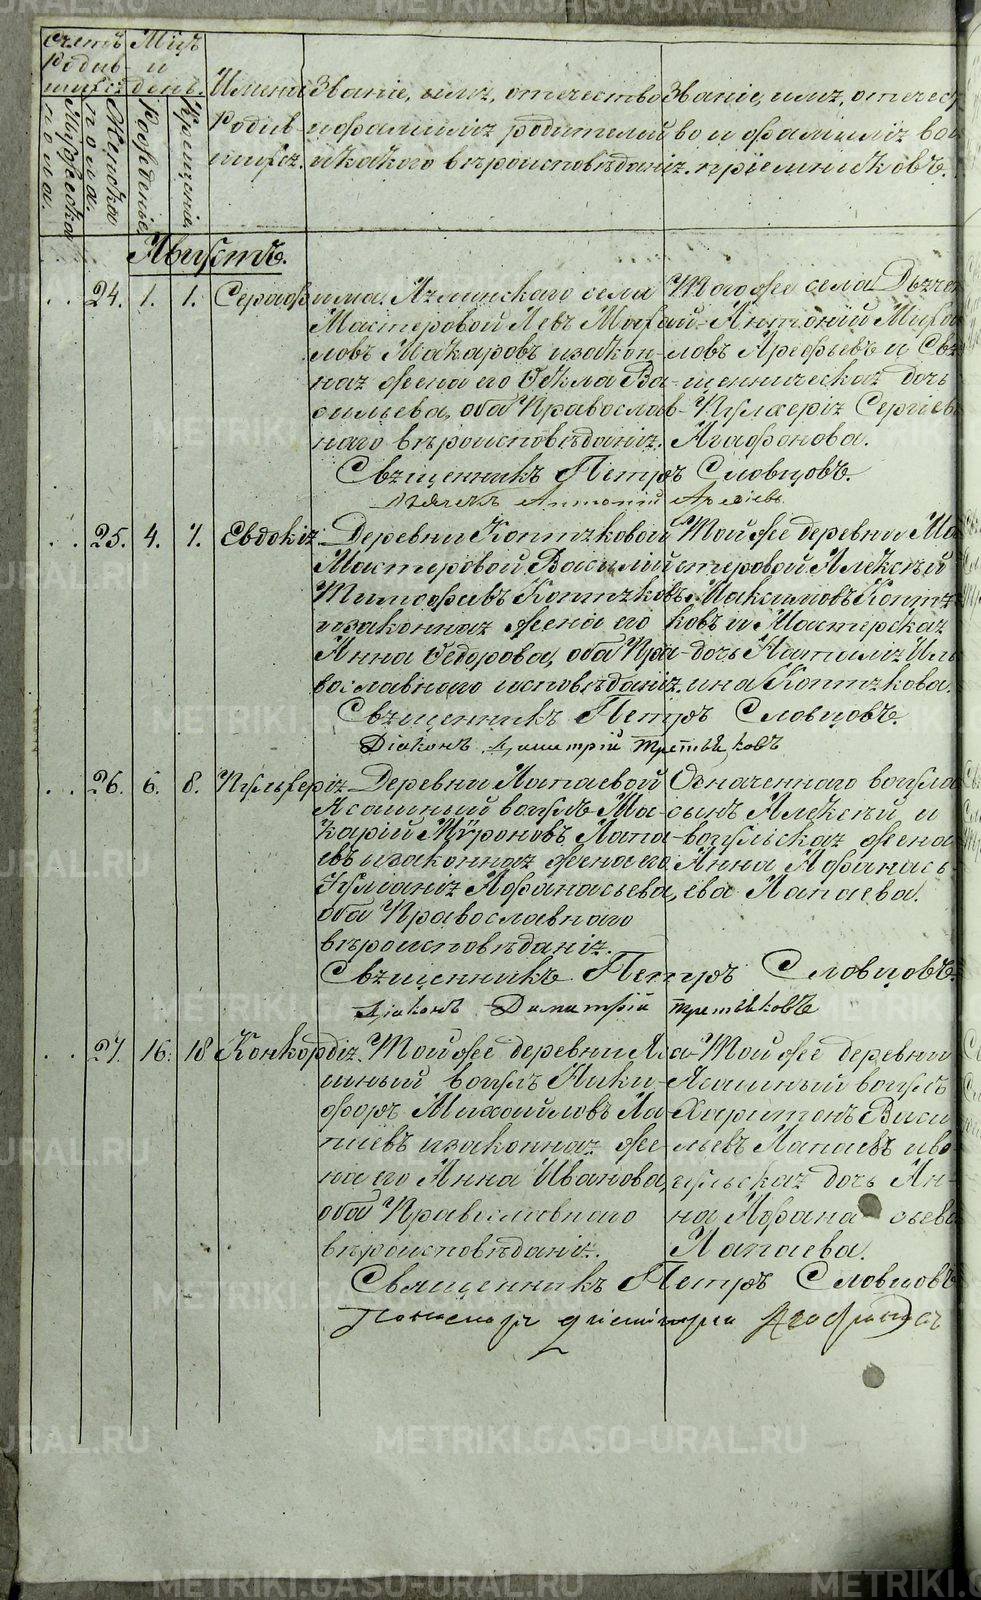 Счетъ родившихся
Мужеска пола.
Женска пола.
Мцъ и день.
Рожденіе,
Крещенія,
Имена родившихся.
Званіе, имя, отчество
и фамилія родителей
и какого вѣроисповѣданія.
Званіе, имя, отчест
во и фамилія во
пріемниковъ.
Августъ.
24. 1. 1. Серафима. Аязминскаго села
Мастеровой Левъ Михай-
ловъ Макаровъ и закон-
ная жена его Ѳекла Ва-
сильева, оба Православ-
наго вѣроисповѣданія.
Того же села Дьячек
Антоній Миха
ловъ Арефьевъ и Свя
щенническая дочь
Пулхерія Сергіев
Агафонова.
Священникъ Петръ Словцовъ.
Дьячекъ Антоній Арефіевъ
25. 4. 7. Евдокія. Деревни Коптяковой
Мастеровой Василій
Тимофеевъ Коптяковъ
и законная жена его
Анна Ѳедорова, оба Пра-
вославнаго исповѣданія.
Той же деревни Ма
стеровой Алексѣй
Максимовъ Коптя
ковъ и Мастерская
дочь Наталія Иль
ина Коптякова.
Священникъ Петръ Словцовъ.
Діаконъ Димитрій Третьяковъ
26. 6. 8. Пульхерія. Деревни Лапаевой
Ясашный вогулъ Ма-
карій Мѵроновъ Лапа-
евъ и законная жена его
Іуліанія Афанасьева,
оба Православнаго
вѣроисповѣданія.
Означеннаго вогула
сынъ Алексѣй и
вогульская жена
Анна Афанась-
ева Лапаева.
Священникъ Петръ Словцовъ.
Діаконъ Димитрій Третьяковъ
27. 16. 18 Конкордія. Той же деревни Яса-
шный вогулъ Ники-
форъ Михайловъ Ла-
паевъ и законная же-
на его Анна Иванова,
оба Православнаго
вѣроисповѣданія.
Той же деревни
Ясашный вогулъ
Харитонъ Васи
льевъ Лапаевъ и во-
гульская дочь Ан-
на Афанасьева
Лапаева.
Священникъ Петръ Словцовъ
Пономарь Димитрій Агафоновъ
METRIKI.GASO-URAL.RU